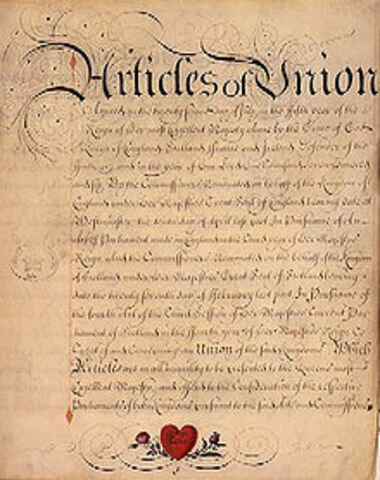 Articles of Union
Agreed on the twenty Second day of July in the fifth year of the
Reign of Her most Excellent Majesty Anne by the Grace of God
Queen of England Scotland France and Ireland Defender of the
Faith &c and in the year of Our Lord One thousand seven hundred
and six By the Commissioners Nominated on behalf of the Kingdom of
England under Her Majesties Great Seal of England bearing date at
Westminster the tenth day of April last past In Pursuance of
Act of Parliament made in England in the third year of Her Majesties
Reign and the Commissioners Nominated on the behalf of the Kingdom
of Scotland under Her Majesties Great Seal of Scotland bearing
date the twenty seventh day of February last past In Pursuance of
the fourth Act of the third Session of Her Majesties Current Par
liament of Scotland in the fourth year of Her Majesties Reign to
treat of and Concerning an Union of the said Kingdoms Which
Articles are in all humility to be presented to the Queens most
Excellent Majesty and offered to the Consideration of the respective
Parliaments of both Kingdoms pursuant to the said Acts and Commissions